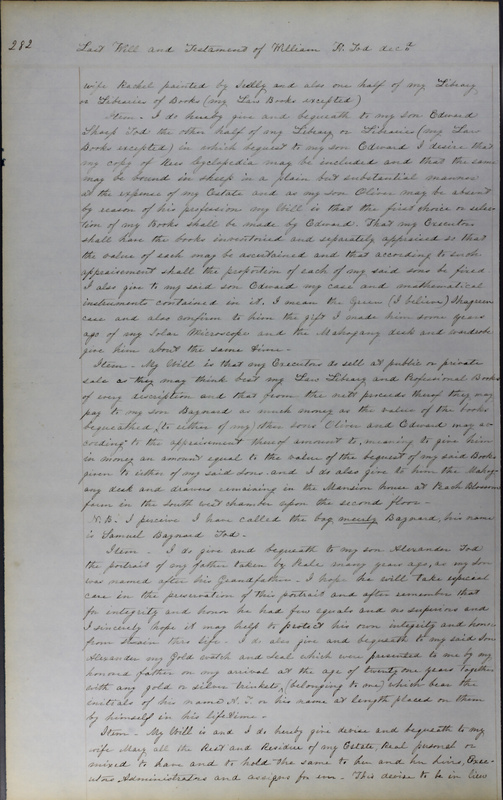 282
Last Will and Testament of William R. Tod dec.d
wife Rachel painted by Sully and also one half of my Library
or Libraries of Books (my Law Books excepted)
Item. I do hereby give and bequeath to my son Edward
Sharp Tod the other half of my Library or Libraries (my Law
Books excepted) in which bequest to my son Edward I desire that
my copy of Rees Cyclopedia may be included and that the same
may be bound in sheep in a plain but substantial manner
at the expense of my Estate and as my son Oliver may be absent
by reason of his profession my Will is that the first choice or selec
tion of my Books shall be made by Edward. That my Executors
shall have the books inventoried and separately appraised so that
the value of each may be ascertained and that according to such
appraisement shall the proportion of each of my said sons be fixed
I also give to my said son Edward my case and mathematical
instruments contained in it. I mean the Green (I believe) Shagreen
case and also confirm to him the gift I made him some years
ago of my Solar Microscope and the Mahogany desk and wardrobe
give him about the same time -
Item - My Will is that my Executors do sell at public or private
sale as they may think best my Law Library and Professional Books
of every discription and that from the nett proceeds thereof they may
pay to my son Baynard as much money as the value of the books
bequeathed to either of my other sons Oliver and Edward may ac-
cording to the appraisment thereof amount to, meaning to give him
in money an amount equal to the value of the bequest of my said Books
given to either of my said sons and I do also give to him the Mahog-
any desk and drawers remaining in the Mansion house at Peach Blossom
farm in the south west chamber upon the second floor -
N.B. I perceive I have called the boy merely Baynard, his name
is Samuel Baynard Tod.
Item - I do give and bequeath to my son Alexander Tod
the portrait of my father taken by Peale many years ago, as my son
was named after his Grandfather. I hope he will take especial
care in the preservation of this portrait and often remember that
for integrity and honor he had few equals and no superiors and
I sincerely hope it may help to protect his own integrity and honor
from stain thro life. I do also give and bequeath to my said Son
Alexander my Gold watch and Seal which were presented to me by my
honored father on my arrival at the age of twenty one years together
with any gold or silver trinkets (belonging to me) which bear the
initials of his name A. T. or his name at length placed on them
by himself in his lifetime -
Item - My Will is and I do hereby give devise and bequeath to my
wife Mary all the Rest and Residue of my Estate, Real personal or
mixed to have and to hold the same to her and her heirs, Exec-
utors Administrators and assigns for ever. This devise to be in lieu